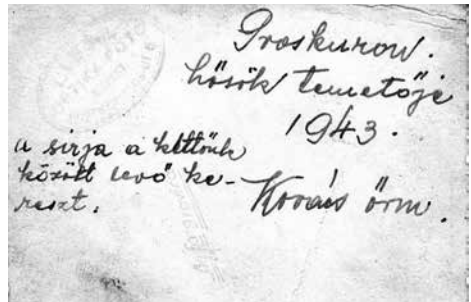 Proskurow.
hősök temetője
1943.
a sirja a kettőnk
között levő ke-
reszt.
Kovács örm.